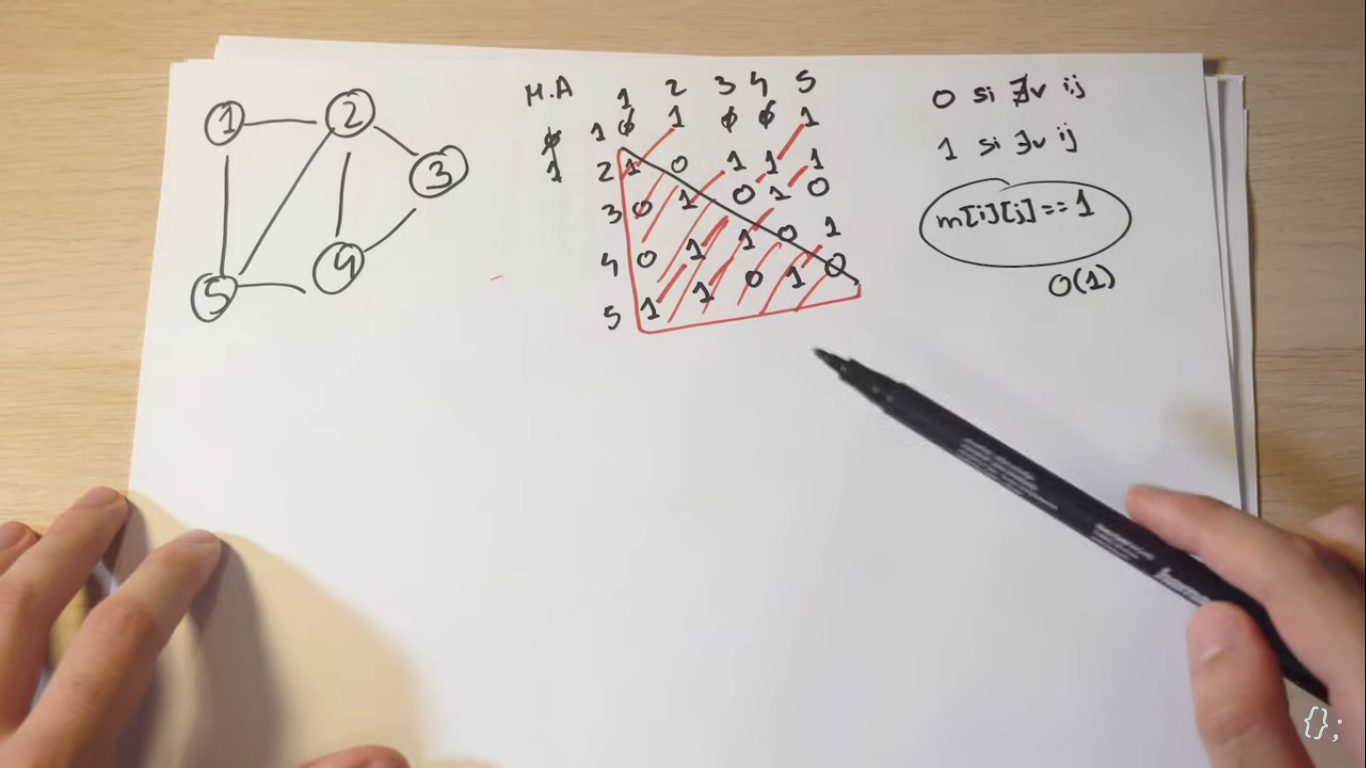 1
2
3
4
5
M.A
1 2 3 4 5
ø 1 ø 1 ø ø 1
1 2 1 0 1 1 1
3 0 1 0 1 0
4 0 1 1 0 1
5 1 1 0 1 0
0 si ∄v ij
1 si ∃v ij
m[i][j]==1
O(1)
{};